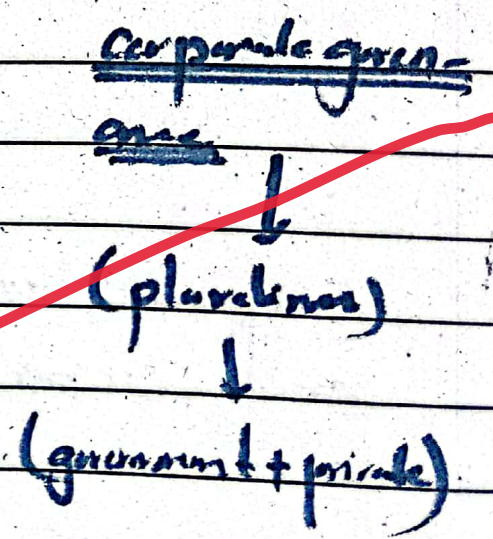 Corporate govern-
ance
↓
(pluralism)
↓
(government + private)